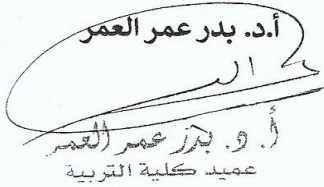 أ.د. بدر عمر العمر
أ. د. بدر عمر العمر
عميد كلية التربية